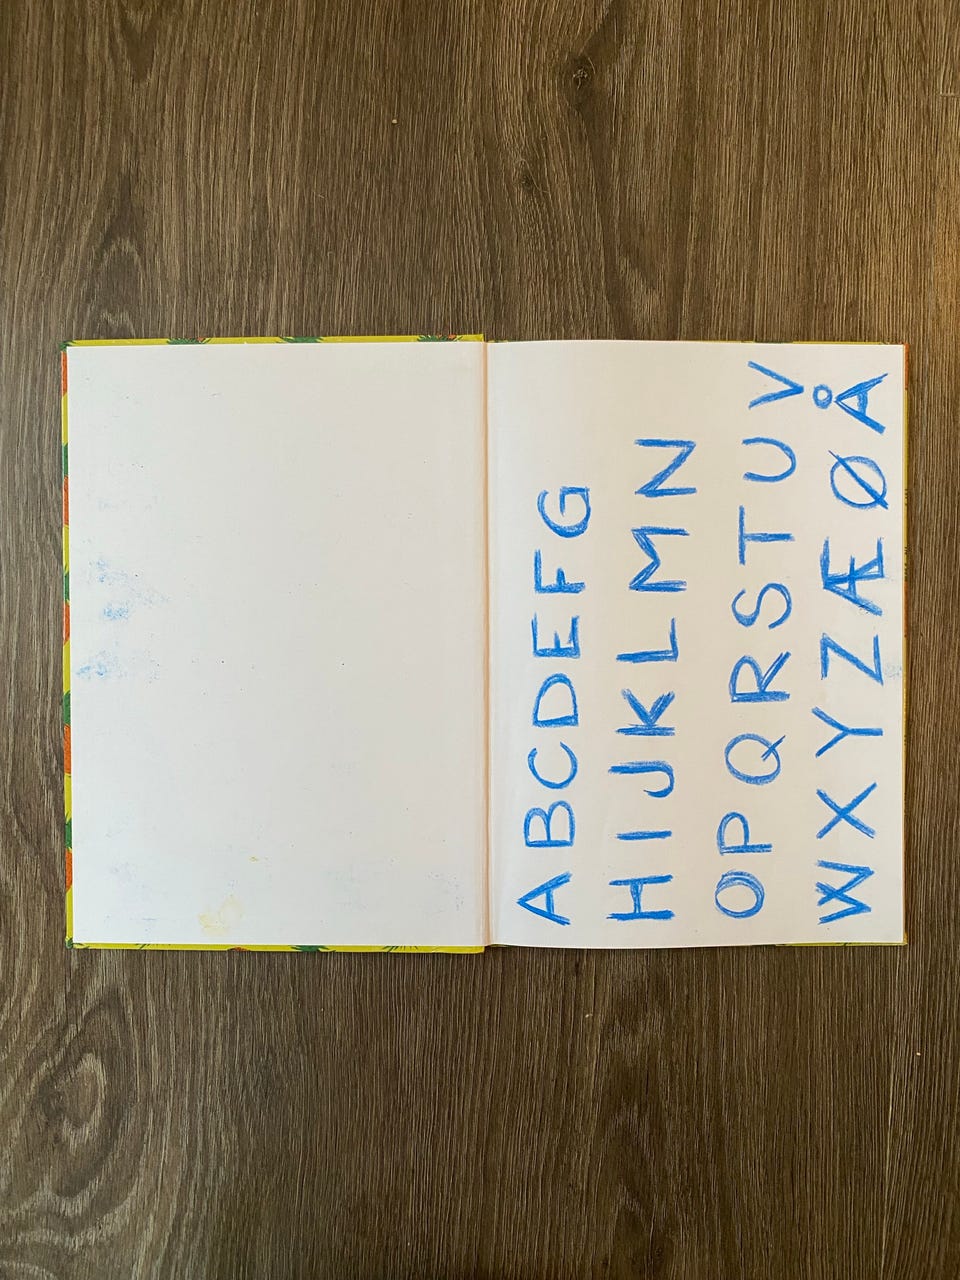 ABCDEFG
HIJKLMN
OPQRSTUV
WXYZÆØÅ